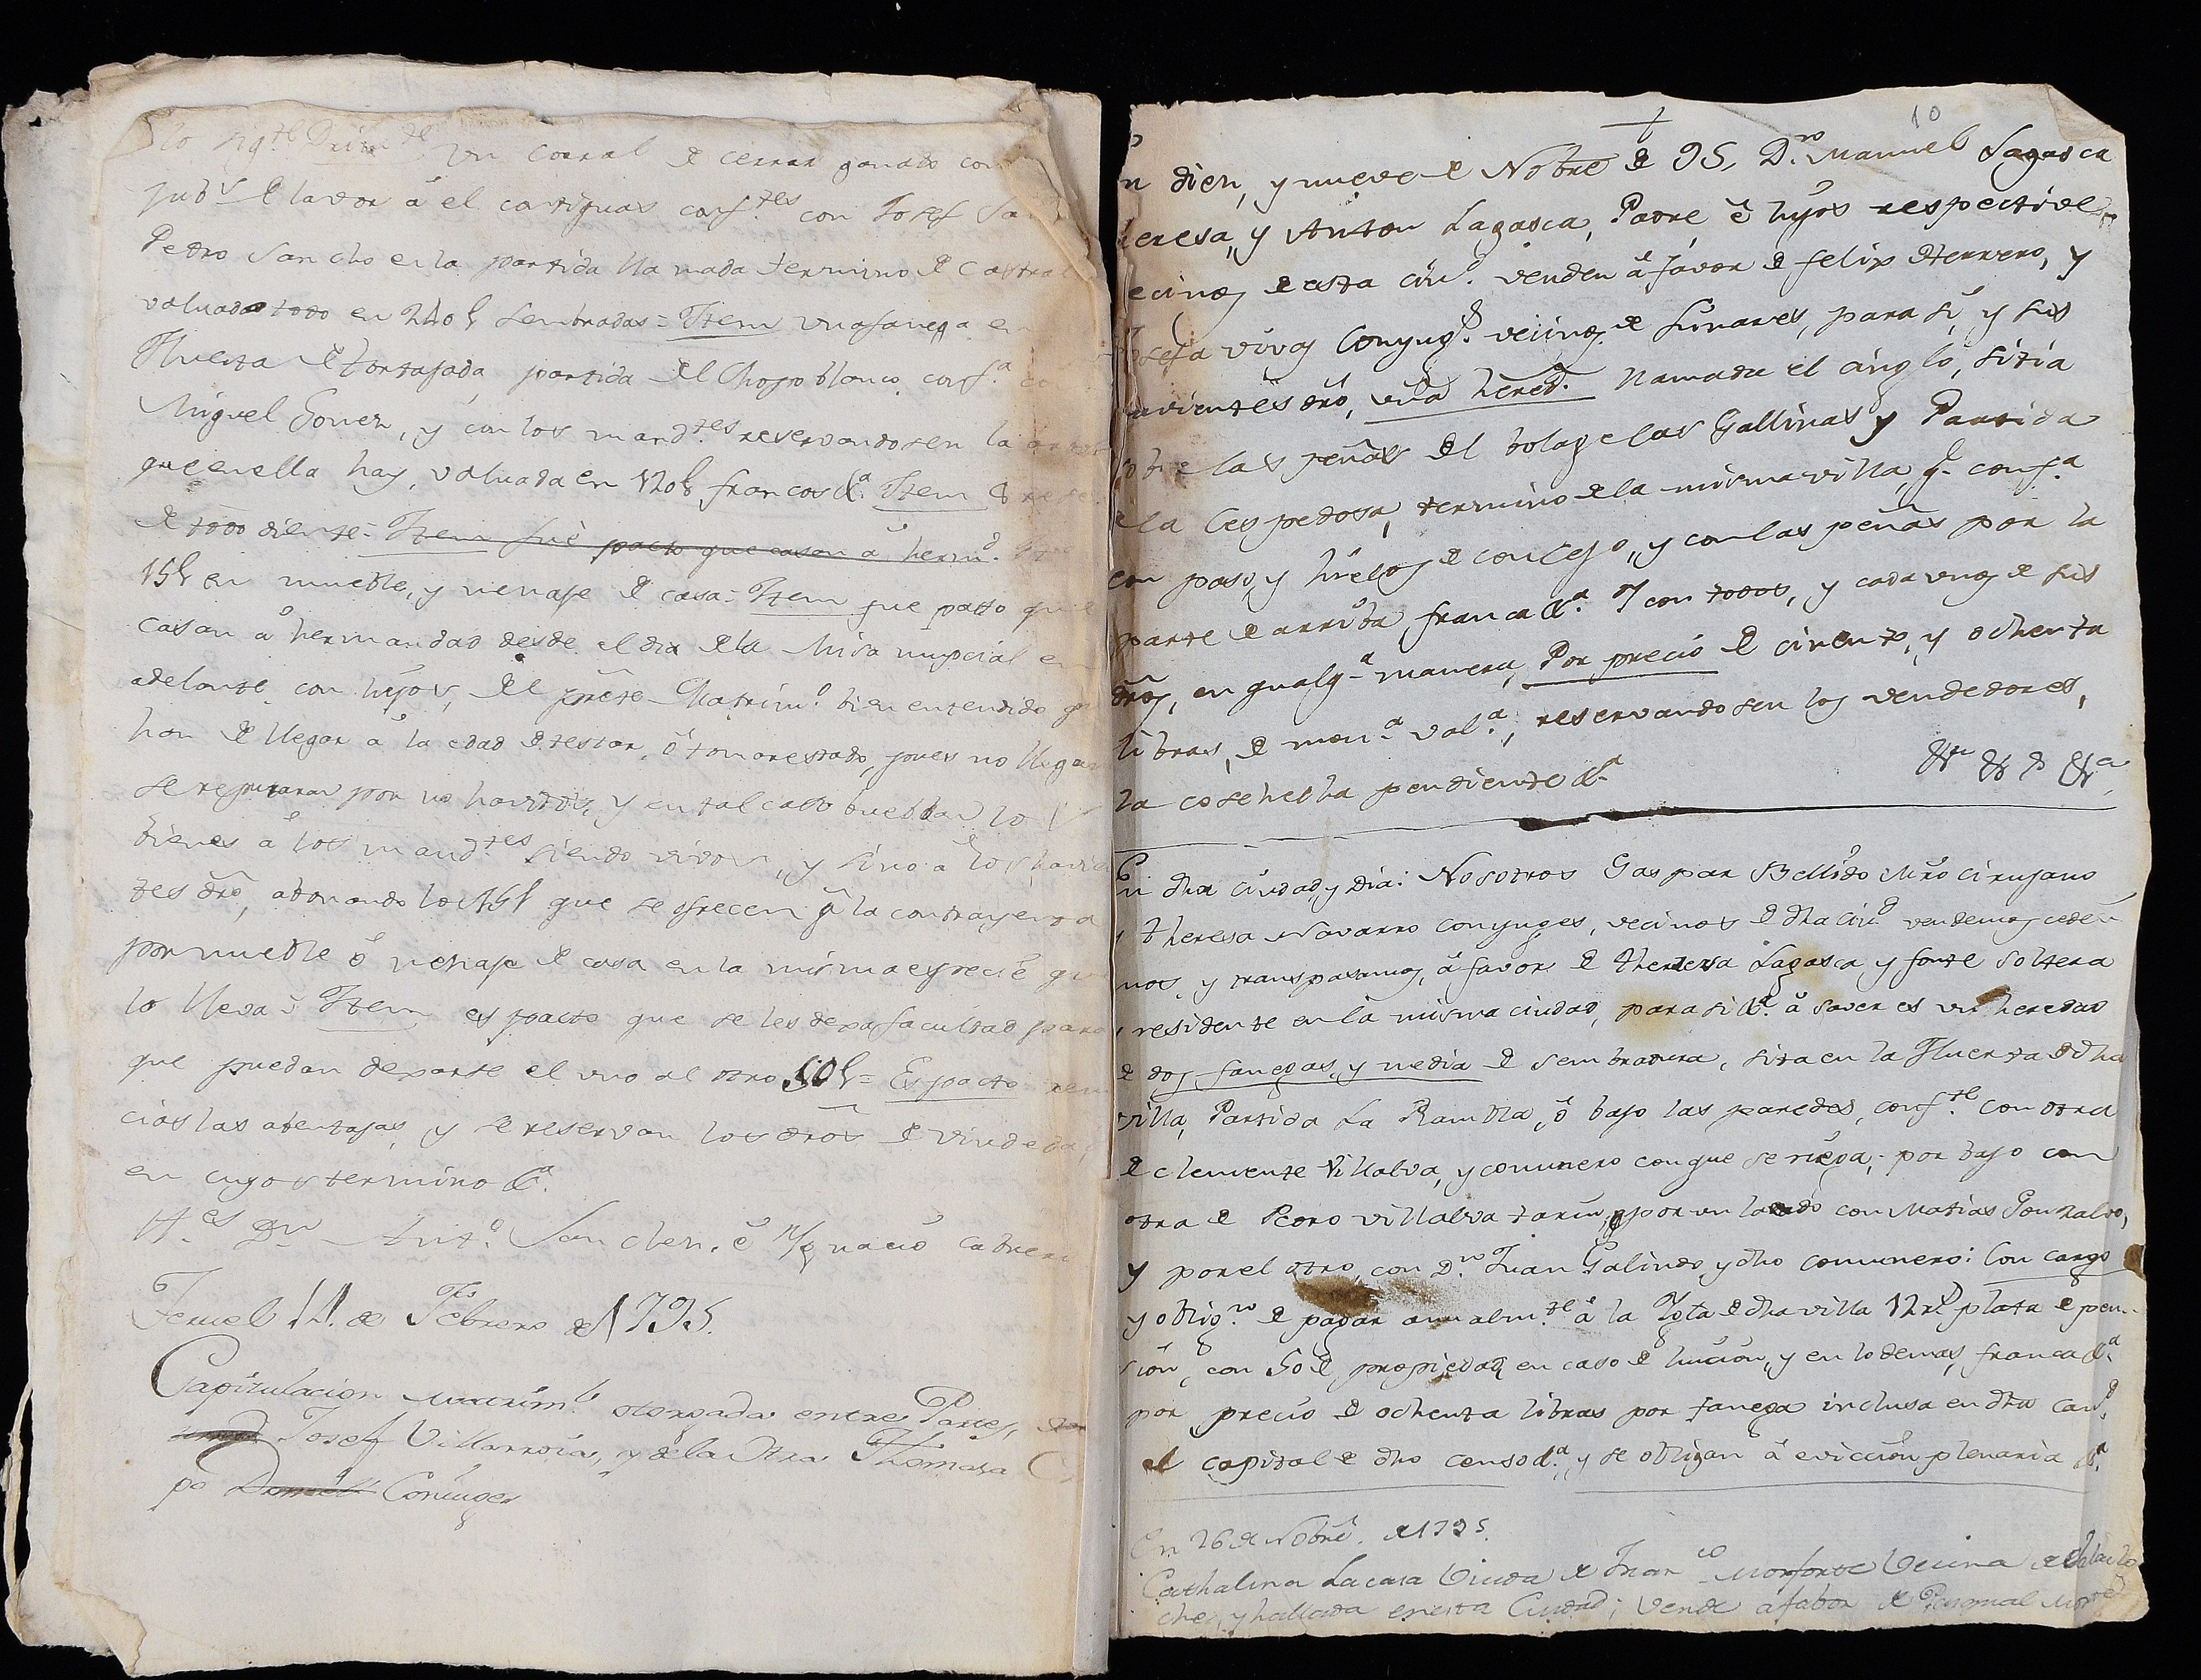 lo sig.te Prim.te un corral de cerrar ganado con
jub.s de lavor á el contiguas conf.tes con Josef
Pedro Sancho en la partida llamada termino de Castral
valuado todo en 240 l sembradas = Item una fanega en
Huerta de Tortajada, partida del Chopo blanco conf.a
Miguel Gomez, y con los mand.tes reservandosen la
que en ella hay, valuada en 120 l francos &.a Item 8
de todo diente = Item fue pacto que casan á herm.d
15 l en mueble, y menaje de casa = Item fue pacto que
casan á hermandad desde el dia de la Misa nupcial en
adelante con hijos, del preste Matrim.o bien entendido q
han de llegar á la edad de testar, ó tomar estado, pues no llegan
se reputaran por no havidos, y en tal caso buelban lo
bienes á los mand.tes siendo vivos, y sino á los havien
tes dro, abonando los 15 l que se ofrecen á la contrayenta
por mueble ó menaje de casa en la misma especie que
lo lleva = Item es pacto que se les dexa facultad para
que puedan dexarse el uno al otro 50 l = Es pacto ren
cian las abentajas, y se reservan los dros de viudedad
en cuyos termino &.a
tt.es D.n Ant.o Sanchez, é Ygnacio Cabrera
Teruel 14 de Febrero de 1795.
Capitulacion Matrim.l otorgada entre Partes,
Josef Villarroia, y de la otra Thomasa
po Conjuges
10
n diez, y nueve de Nobre de 95, D.n Manuel Lagasca
heresa, y Anton Lagasca, Padre é hijos respective
ecinos de esta ciu.d venden á favor de Felix Herrero, y
Josefa vivas Conyug.s vecinos de Linares, para sí, y sus
havientes dro, una hered.d llamada el cinglo, sitia
sobre las peñas del bolage las Gallinas y Partida
de la Cespedosa, termino de la misma villa, q.e conf.a
con paso, y hielos de concejo, y con las peñas por la
parte de arriba franca &.a Y con todos, y cada unos de sus
dros, en qualq.a manera, Por precio de ciento, y ochenta
libras, de mon.a val.a, reservandosen los vendedores,
la cosehecha pendiente &.a
En dha ciudad, y Dia: Nosotros Gaspar Bellido Mro cirujano
y Theresa Navarro conyuges, vecinos de dha ciu.d vendemos cede
mos, y transpasamos, á favor de Theresa Lagasca y fonte soltera
residente en la misma ciudad, para si &.a á saver es un heredad
de dos fanegas, y media de sembradura, sita en la Huerta de dha
villa, Partida La Rambla, ó bajo las paredes, conf.te con otra
de clemente Villalva, y comunero con que se riega; por bajo con
otra de Pedro Villalva tarin, y por un lado con Matias Gonzalvo,
y por el otro, con D.n Juan Galindo y dho comunero: Con cargo
y oblig.n de pagar anualm.te á la Ygla de dha villa 12 r.s plata de pen-
sión, con 50 de propiedad en caso de luicion, y en lo demas, franca &.a
por precio de ochenta libras por fanega inclusa en dha can.d
el capital de dho censo &.a, y se obligan á eviccion plenaria &.a
En 26 de Nobre. de 1795.
Cathalina Lacasa Viuda de Fran.co Monforte Vecina de
che, y hallada en esta Ciudad; vende á fabor de Pasqual